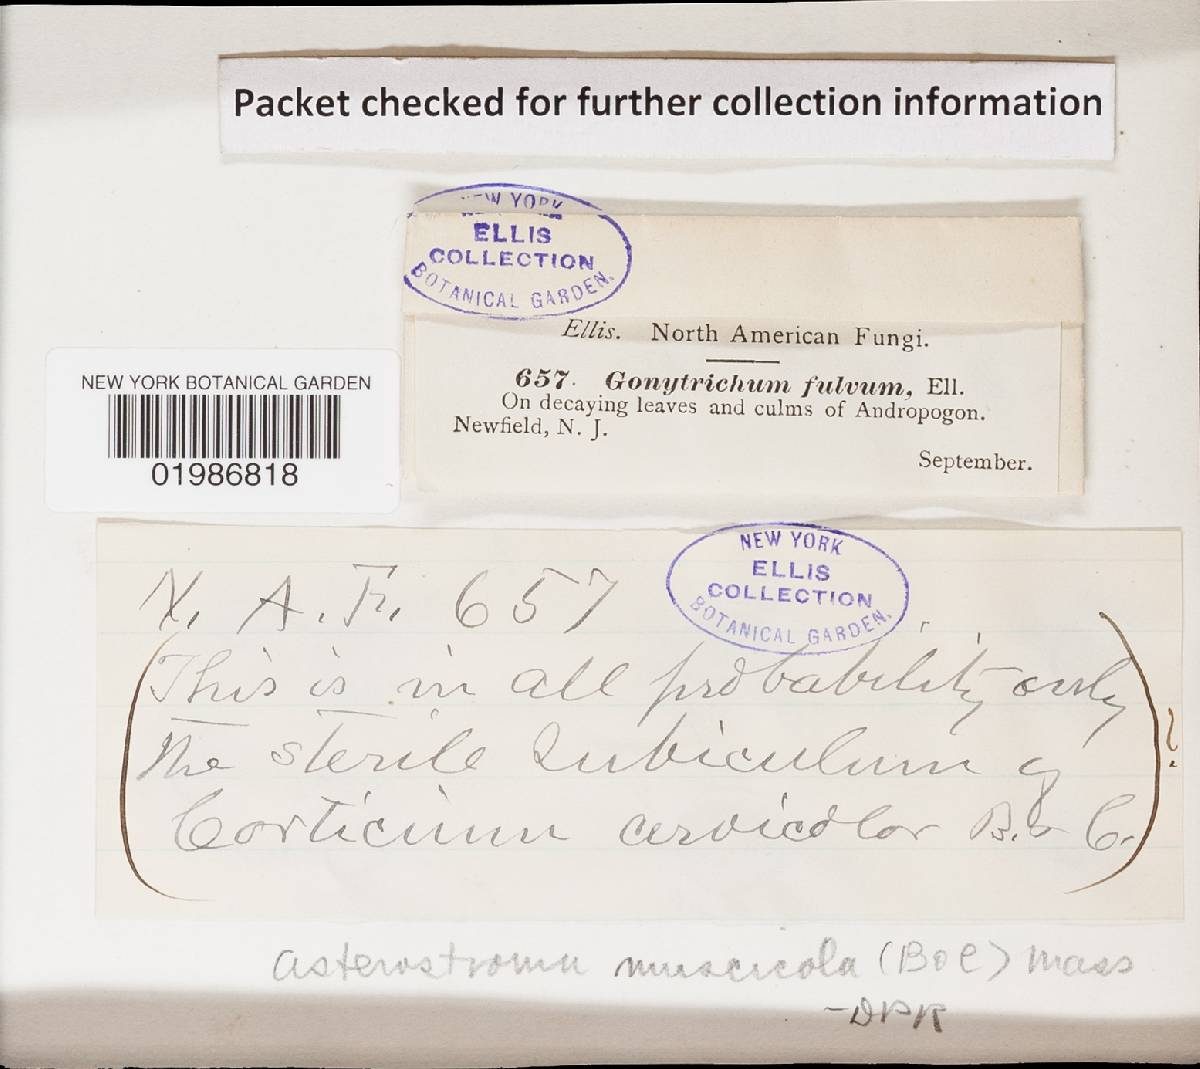 Packet checked for further collection information
NEW YORK
ELLIS
COLLECTION
BOTANICAL GARDEN.
Ellis. North American Fungi.
657. Gonytrichum fulvum, Ell.
On decaying leaves and culms of Andropogon.
Newfield, N. J.
September.
NEW YORK BOTANICAL GARDEN
01986818
NEW YORK
ELLIS
COLLECTION
BOTANICAL GARDEN.
N. A. F. 657
(This is in all probability only
the sterile subiculum of
Corticium cervicolor B. & C.) ?
Asterostroma muscicola (B & C) Mass
- DPR